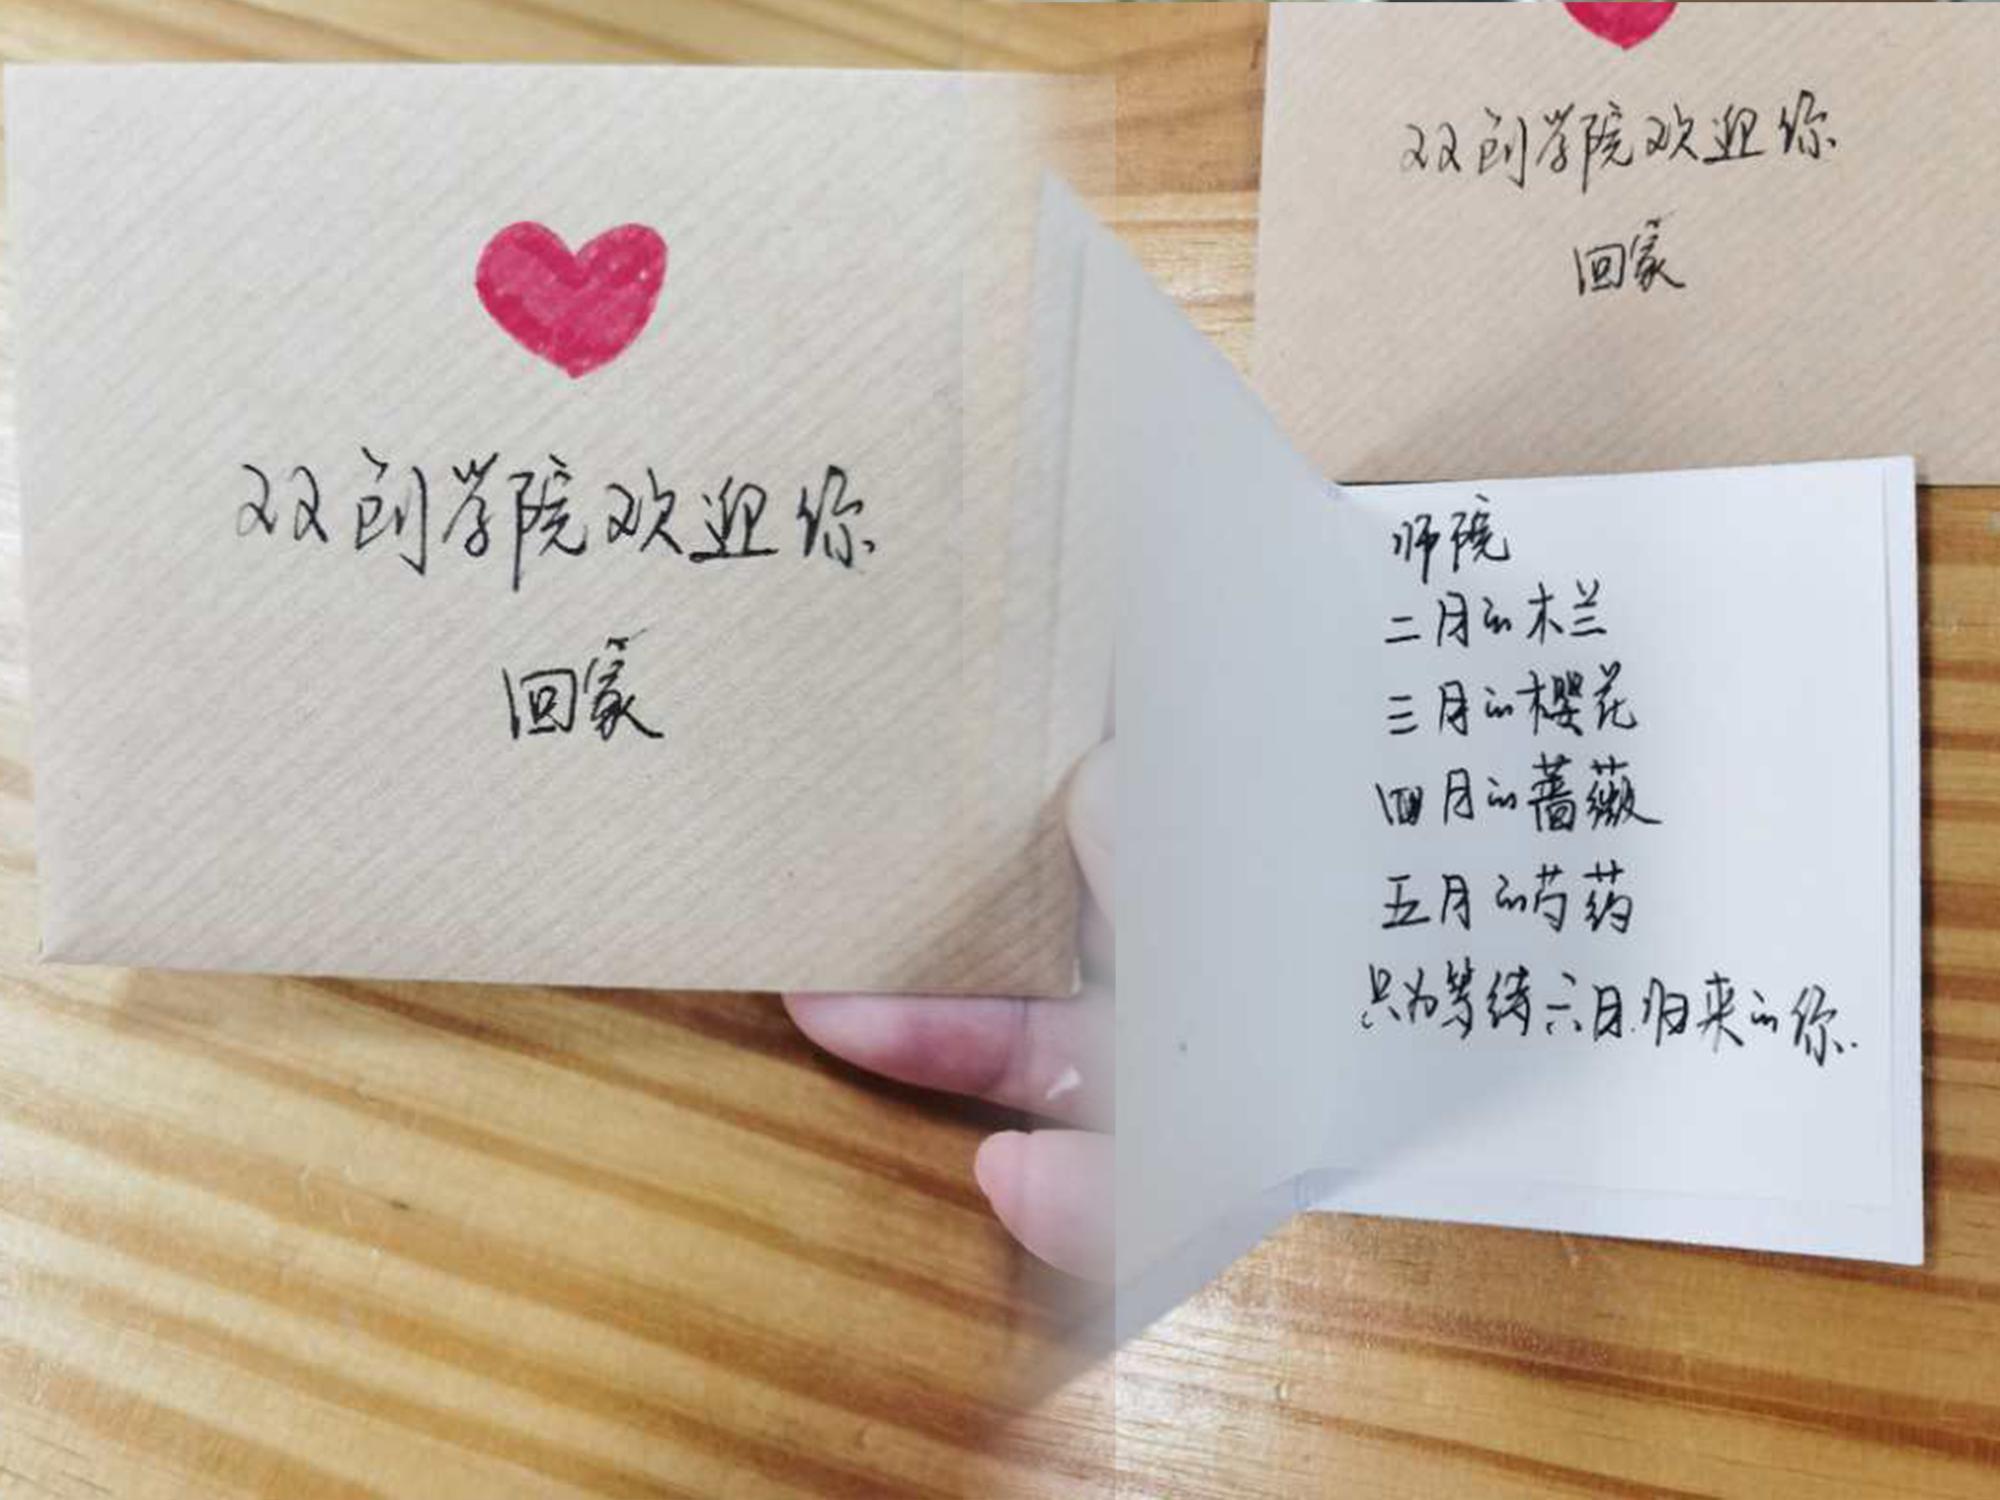 双创学院欢迎你
回家
双创学院欢迎你
回家
师院
二月的木兰
三月的樱花
四月的蔷薇
五月的芍药
只为等待六月归来的你.